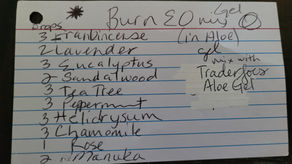 Burn EO mix Gel
Drops
(in Aloe)
3 Frankincense
2 Lavender
gel
3 Eucalyptus
mix with
2 Sandalwood
Trader Joes
3 Tea Tree
Aloe Gel
3 Peppermint
3 Helichrysum
3 Chamomile
1 Rose
2 Manuka